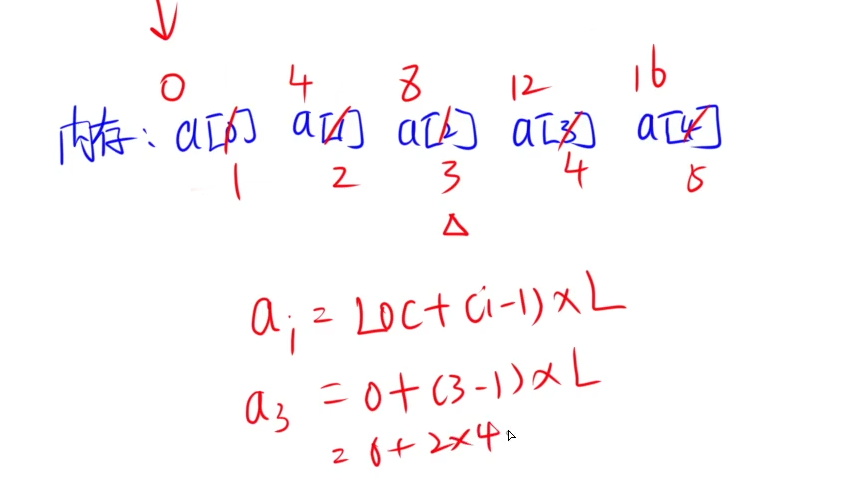 0 4 8 12 16
内存: a[0] a[1] a[2] a[3] a[4]
1 2 3 4 5
Δ
ai = LOC+(i-1)×L
a3 = 0+(3-1)×L
= 0+2×4